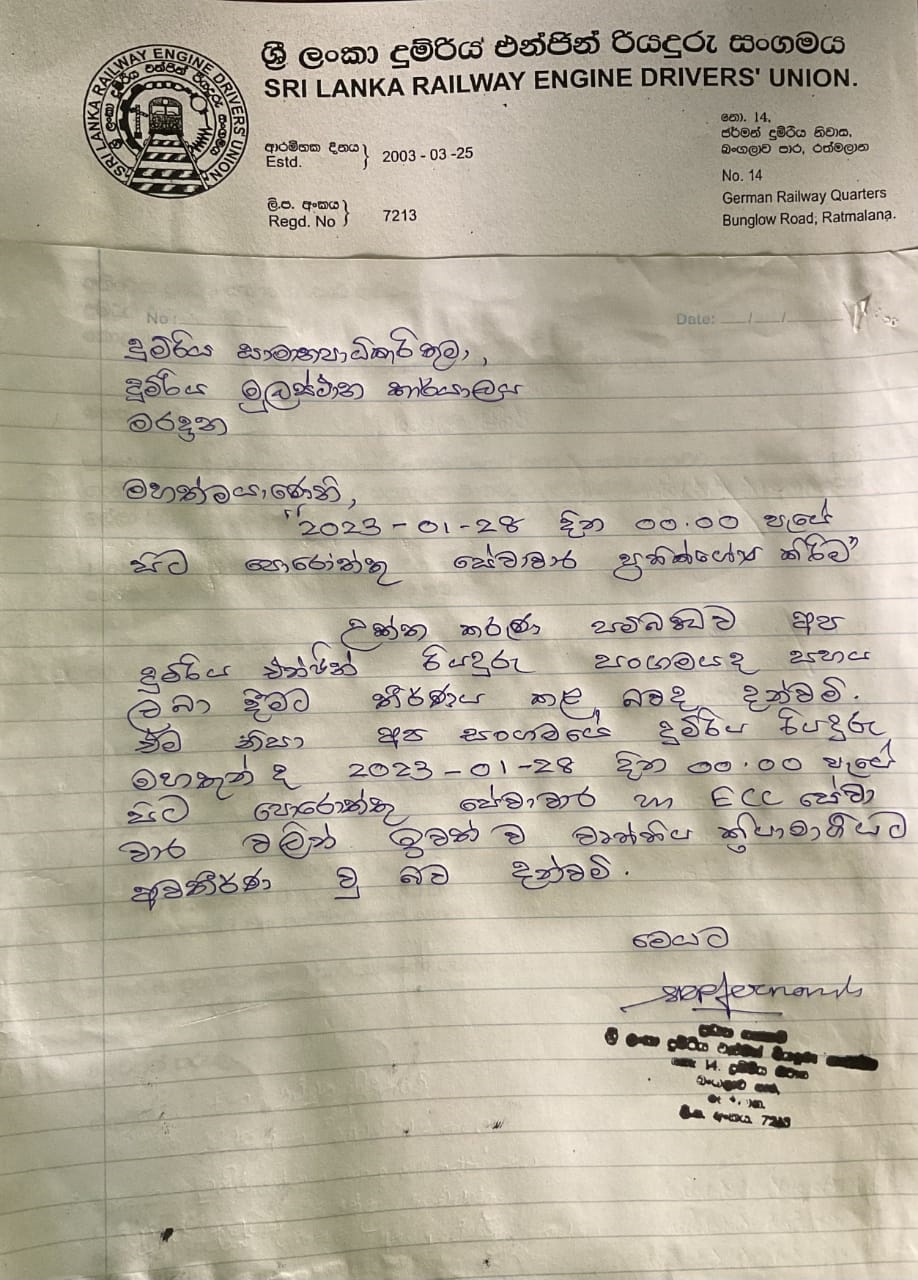 ශ්‍රී ලංකා දුම්රිය එන්ජින් රියදුරු සංගමය
SRI LANKA RAILWAY ENGINE DRIVERS' UNION.
SRI LANKA RAILWAY ENGINE DRIVERS' UNION
ආරම්භක දිනය
Estd. } 2003 - 03 -25
ලි.ප. අංකය
Regd. No } 7213
නො. 14,
ජර්මන් දුම්රිය නිවාස,
බංගලාව පාර, රත්මලාන
No. 14
German Railway Quarters
Bunglow Road, Ratmalana.
No :
Date: __/__/__
දුම්රිය සාමාන්‍යාධිකාරිතුමා,
දුම්රිය මූලස්ථාන කාර්යාලය
මරදාන
මහත්මයාණෙනි,
"2023-01-28 දින 00.00 පැයේ
සිට පොරොත්තු සේවාවාර ප්‍රතික්ෂේප කිරීම"
උක්ත කරුණ සම්බන්ධව අප
දුම්රිය එන්ජින් රියදුරු සංගමයද සහය
ලබා දීමට තීරණය කළ බවද දන්වමි.
ඒම නිසා අප සංගමයේ දුම්රිය රියදුරු
මහතුන් ද 2023-01-28 දින 00.00 පැයේ
සිට පොරොත්තු සේවාවාර හා ECC සේවා
වාර වලින් ඉවත් ව වෘත්තීය ක්‍රියාමාර්ගයට
අවතීර්ණ වූ බව දන්වමි.
මෙයට
ශ්‍රී ලංකා දුම්රිය එන්ජින්
14, දුම්රිය
7213